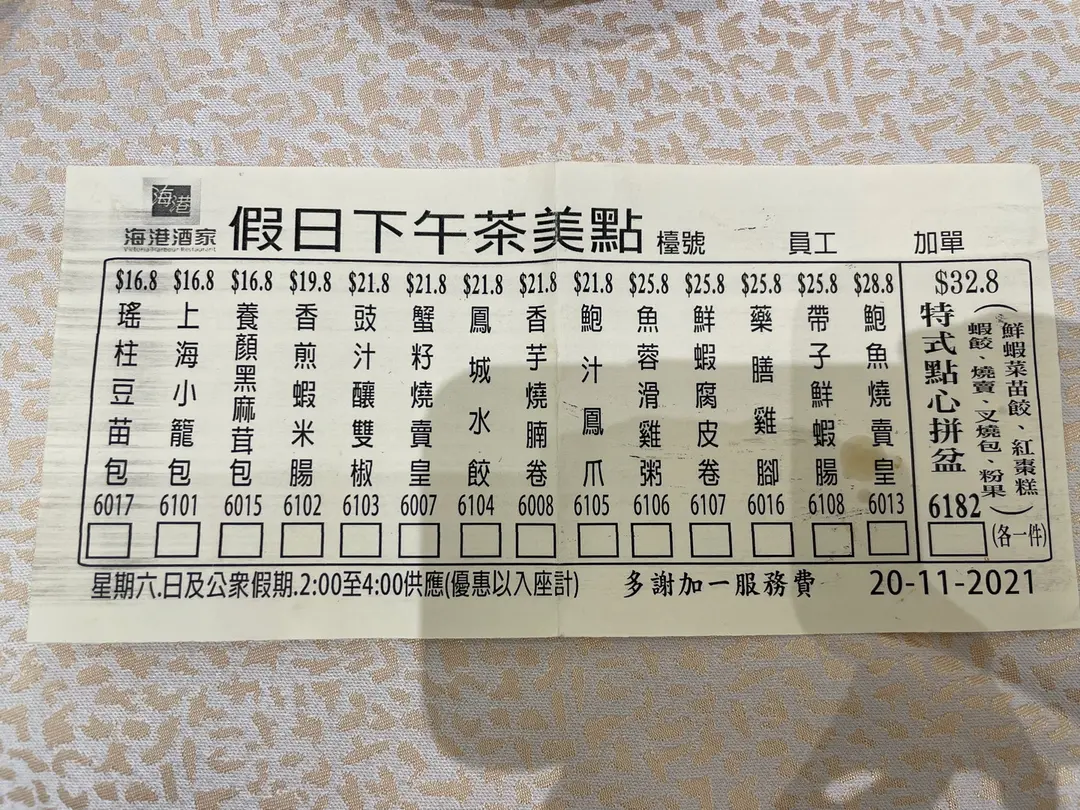 海港
海港酒家
Victoria Harbour Restaurant
假日下午茶美點 檯號 員工 加單
$16.8 $16.8 $16.8 $19.8 $21.8 $21.8 $21.8 $21.8 $21.8 $25.8 $25.8 $25.8 $25.8 $28.8 $32.8
瑤柱豆苗包
上海小籠包
養顏黑麻茸包
香煎蝦米腸
豉汁釀雙椒
蟹籽燒賣皇
鳳城水餃
香芋燒腩卷
鮑汁鳳爪
魚蓉滑雞粥
鮮蝦腐皮卷
藥膳雞腳
帶子鮮蝦腸
鮑魚燒賣皇
特式點心拼盆
(鮮蝦菜苗餃、紅棗糕
蝦餃、燒賣、叉燒包、粉果)
(各一件)
6017 6101 6015 6102 6103 6007 6104 6008 6105 6106 6107 6016 6108 6013 6182
星期六.日及公眾假期.2:00至4:00供應(優惠以入座計) 多謝加一服務費 20-11-2021